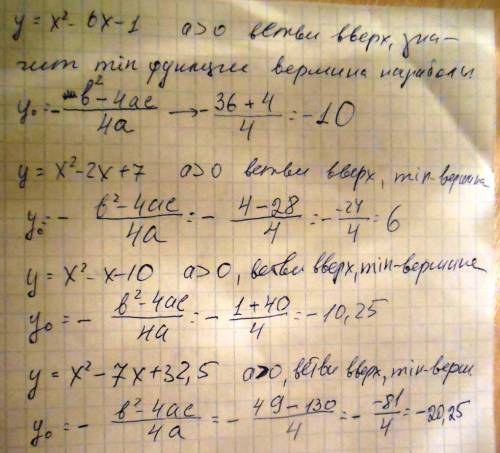 y = x² - 6x - 1 a > 0 ветви вверх, зна-
чит min функции вершина параболы
y₀ = - b² - 4ac / 4a → - 36 + 4 / 4 = -10
y = x² - 2x + 7 a > 0 ветви вверх, min-вершина
y₀ = - b² - 4ac / 4a = - 4 - 28 / 4 = - -24 / 4 = 6
y = x² - x - 10 a > 0, ветви вверх, min-вершина
y₀ = - b² - 4ac / 4a = - 1 + 40 / 4 = -10,25
y = x² - 7x + 32,5 a > 0, ветви вверх, min-верш
y₀ = - b² - 4ac / 4a = - 49 - 130 / 4 = - -81 / 4 = -20,25